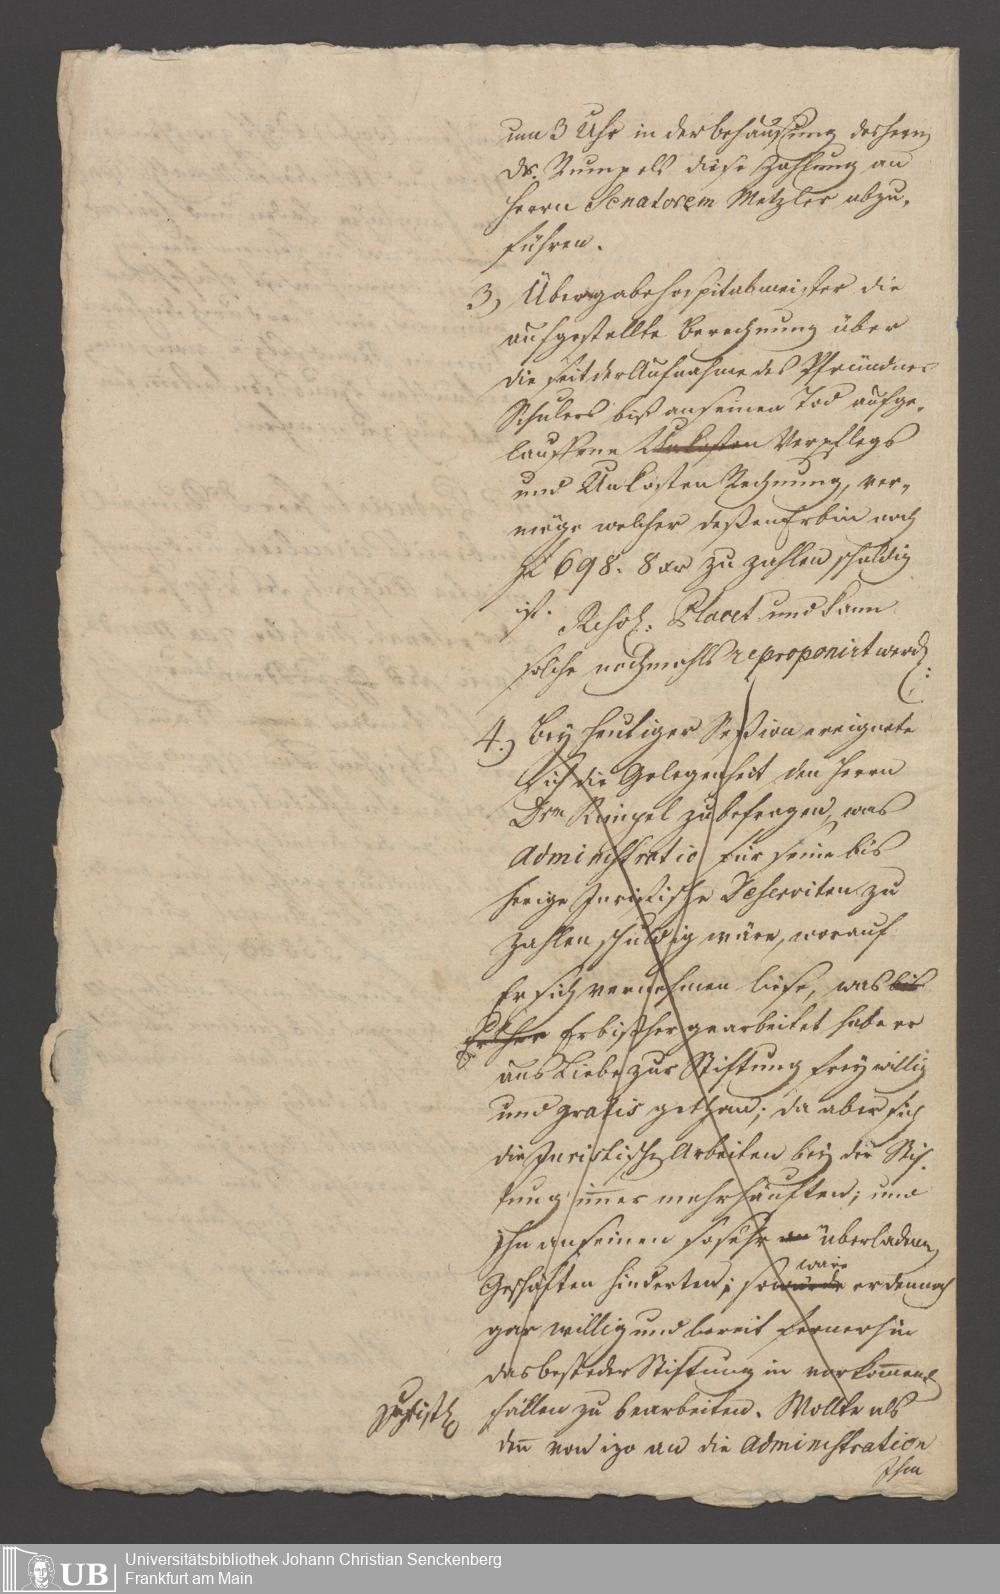 um 3 Uhr in der behaußung des herrn
Dr. Rumpels diese Zahlung an
Herrn Senatorem Metzler abzu-
führen.
3) Übergabe hospitalmeister die
aufgestellte Berechnung über
die seit der Aufnahme des Pfründner
Schulers biß an seinen Tod aufge-
lauffene Unkosten Verpflegs
und Unkosten Rechnung, ver-
möge welcher deßen Erbin noch
f 698. 8 xr zu zahlen schuldig
ist. Resol: Placet und kann
solche nochmahls reproponirt werd:
4.) Bey heutiger Session ereignete
sich die Gelegenheit den Herrn
Drm Rumpel zu befragen, was
Administratio für seine bis
herige Juristische Deserviten zu
zahlen schuldig wäre, worauf
Er sich vernehmen liese, was bis
Er bißher gearbeitet habe er
aus Liebe zur Stiftung freywillig
und gratis gethan; da aber sich
die Juristische Arbeiten bey der Stif-
tung im̄er mehr häuften; und
ihn an seinen so sehr an überladenen
wäre
Geschäften hinderten; so würde er dennoch
gar willig und bereit fernerhin
das beste der Stiftung in vorkom̄end
fällen zu bearbeiten. Wollte als
den̄ von izo an die Administration
Ihm
Universitätsbibliothek Johann Christian Senckenberg
Frankfurt am Main
UB